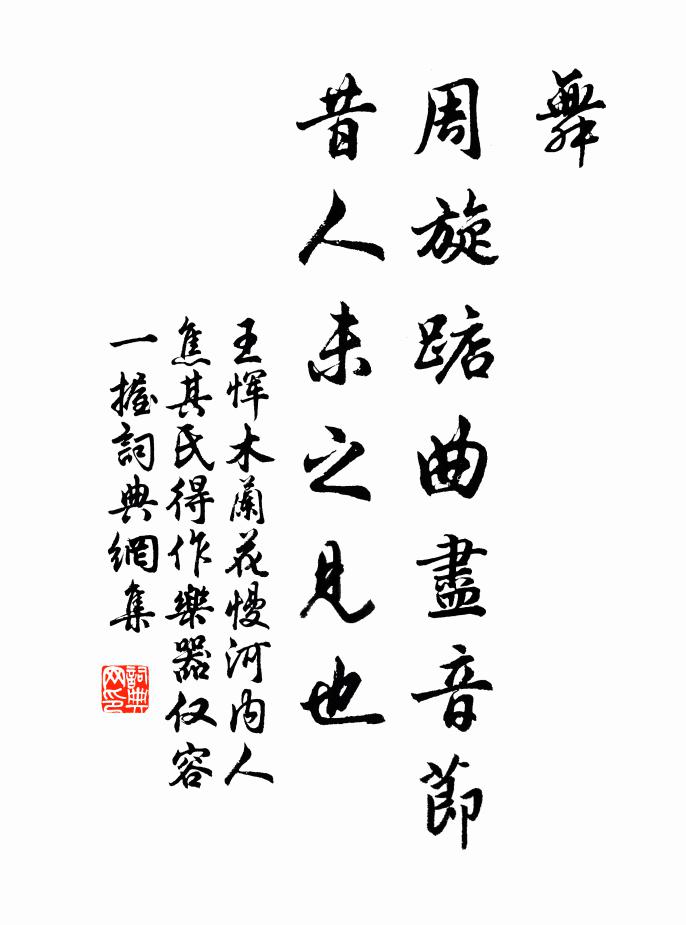 舞
周旋踮曲盡音節
昔人未之見也
王惲木蘭花慢河內人
焦其氏得作樂器仅容
一握詞典網集
詞典
网印